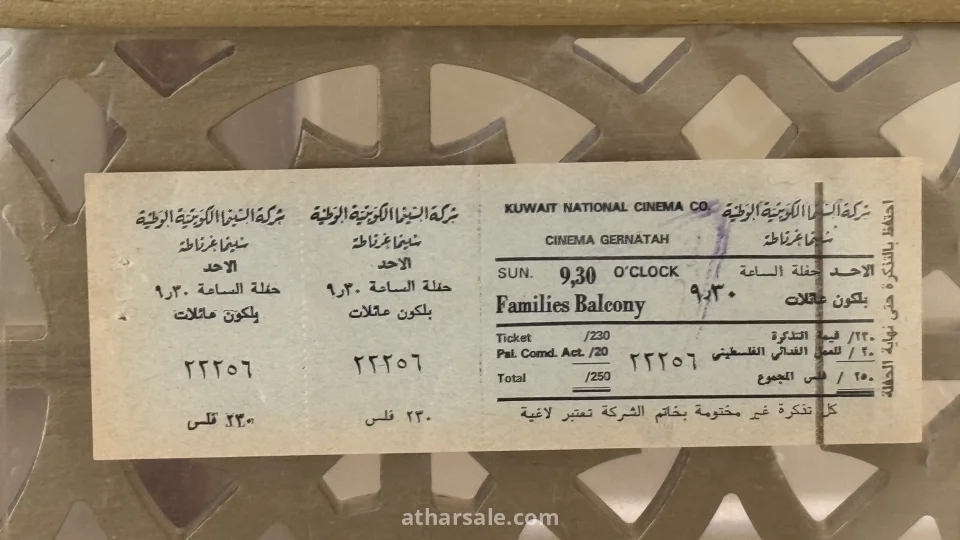 شركة السينما الكويتية الوطنية
سينما غرناطة
الاحد
حفلة الساعة ٩٫٣٠
بلكون عائلات
٢٢٢٥٦
٢٣٠ فلس
شركة السينما الكويتية الوطنية
سينما غرناطة
الاحد
حفلة الساعة ٩٫٣٠
بلكون عائلات
٢٢٢٥٦
٢٣٠ فلس
KUWAIT NATIONAL CINEMA CO. شركة السينما الكويتية الوطنية
CINEMA GERNATAH سينما غرناطة
SUN. 9,30 O'CLOCK الاحد حفلة الساعة ٩٫٣٠
Families Balcony بلكون عائلات
Ticket /230 ٢٣٠/ قيمة التذكرة
Pal. Comd. Act. /20 ٢٠ / للعمل الفدائي الفلسطيني
٢٢٢٥٦
Total /250 ٢٥٠ / فلس المجموع
كل تذكرة غير مختومة بخاتم الشركة تعتبر لاغية
احتفظ بالتذكرة حتى نهاية الحفلة
atharsale.com